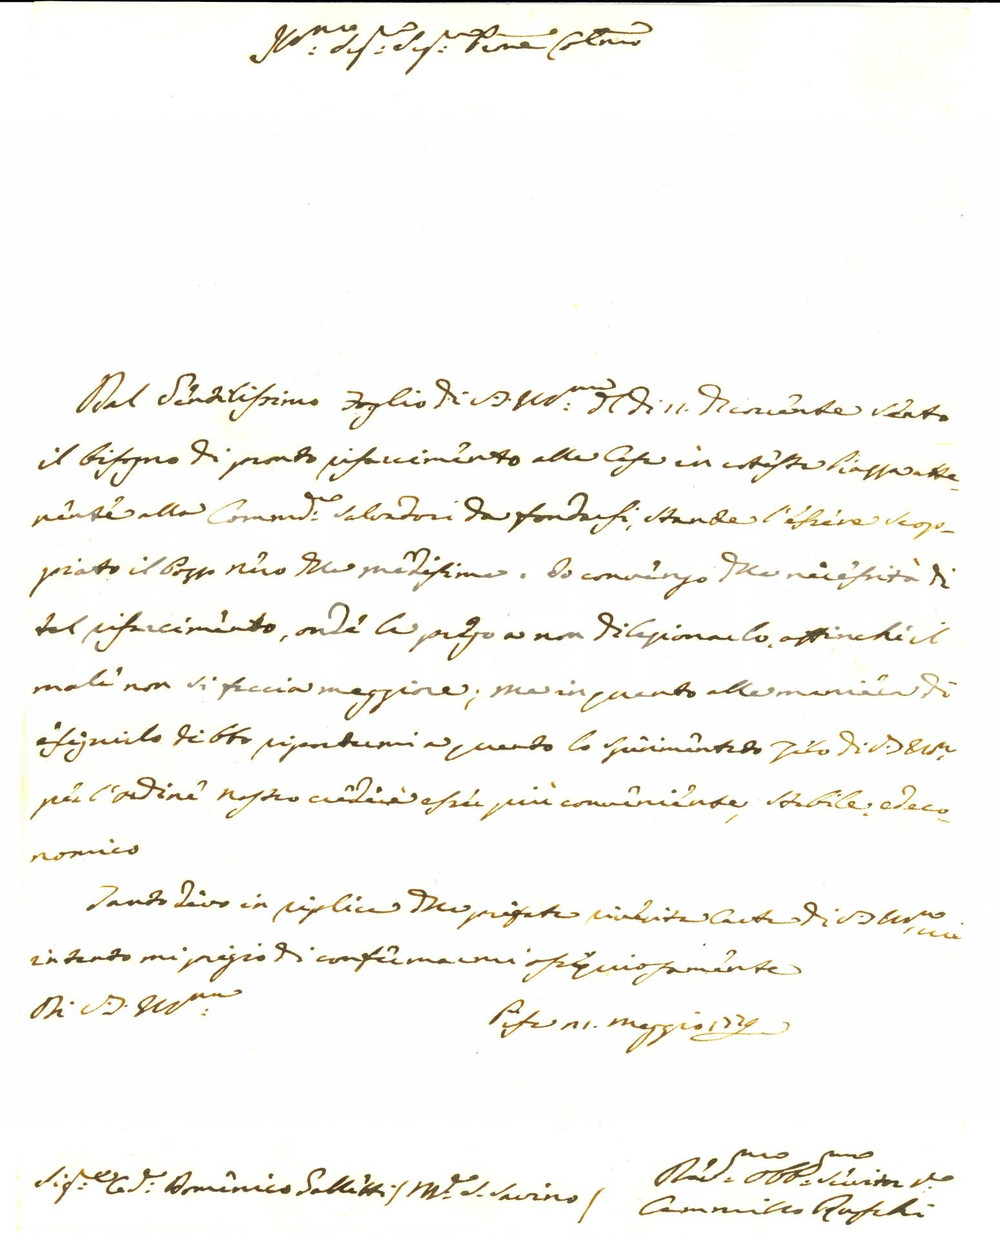 Ill.mo Sig.r Sig.r P.rone Col.mo
Dal Gentilissimo Foglio di V.S. Ill.ma de di 11. Corrente sento
il bisogno di pronto risarcimento alla Casa in cotesta Piazza atte-
nente alla Comm.da Salvadori da fondarsi, stante l'essere scop-
piato il Pozzo nero della medesima. Io convengo della necessità di
tal risarcimento, onde la prego a non dilazionarlo, affinché il
male non si faccia maggiore; ma in quanto alla maniera di
eseguirlo debbo riportarmi a quanto lo sperimentato zelo di V.S. Ill.ma
per l'Ordine nostro crederà esser più conveniente, stabile, ed eco-
nomico
Tanto devo in replica della prefata riverita Carta di V.S. Ill.ma, cui
intanto mi pregio di confermarmi ossequiosamente
Di V.S. Ill.ma
Pisa 21. Maggio 1779
Sig.re Cav.re Domenico Galletti / M.te S. Savino /
Dev.mo Obb.mo Servitor v.o
Cammillo Ruschi